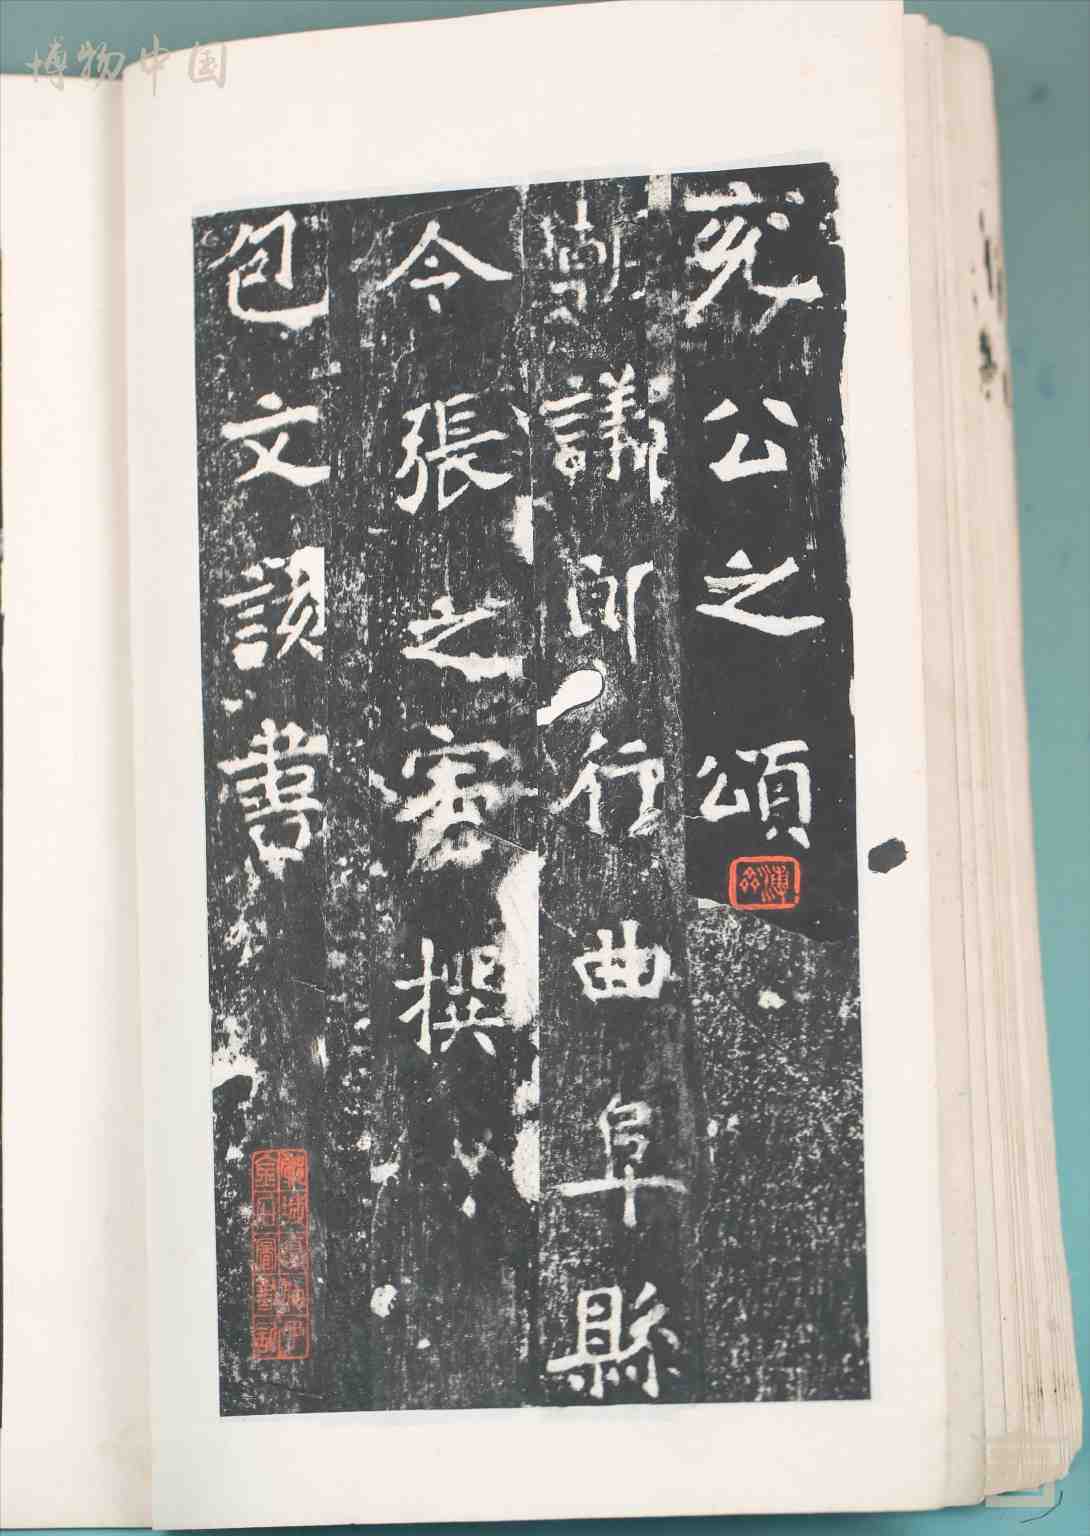 博物中国
兗公之頌
朝議郎行曲阜縣
令張之宏撰
包文該書